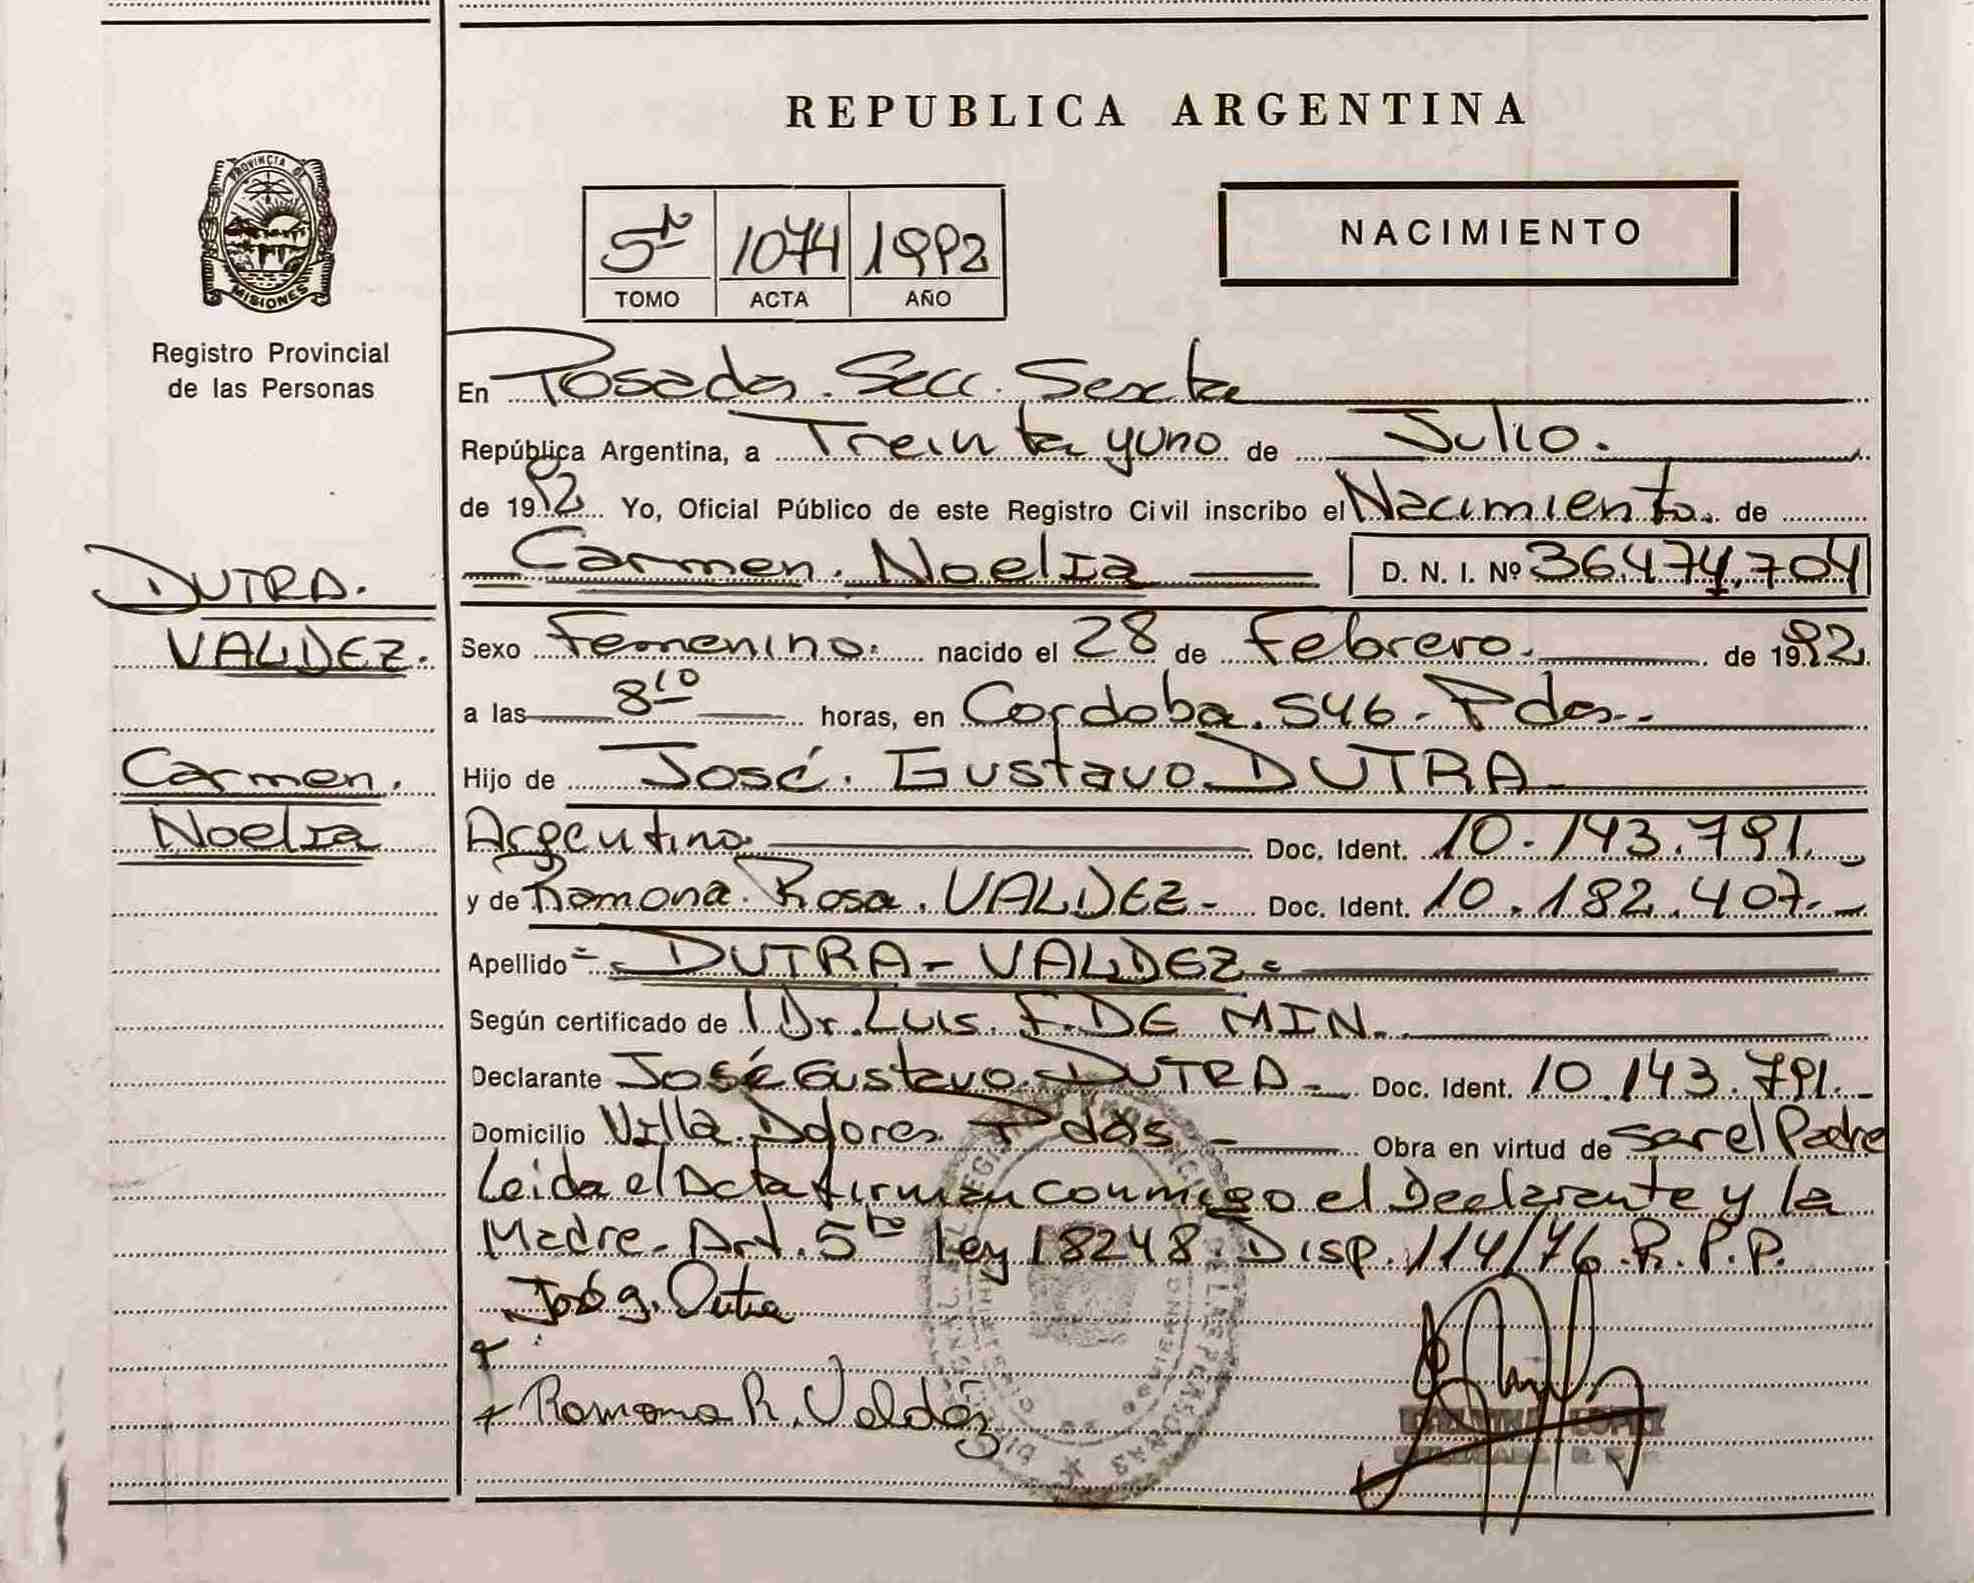 REPUBLICA ARGENTINA
PROVINCIA DE
MISIONES
Registro Provincial
de las Personas
5to 1074 1992
TOMO ACTA AÑO
NACIMIENTO
En Posadas. Secc. Sexta
República Argentina, a Treinta y uno de Julio.
de 1992 Yo, Oficial Público de este Registro Civil inscribo el Nacimiento. de
Carmen. Noelia D. N. I. Nº 36.474.704
DUTRA.
VALDEZ.
Carmen.
Noelia
Sexo Femenino. nacido el 28 de Febrero. de 1992.
a las 8 10 horas, en Cordoba. 546. Pdas.
Hijo de José. Gustavo DUTRA
Argentino Doc. Ident. 10.143.791.
y de Ramona. Rosa. VALDEZ- Doc. Ident. 10.182.407.-
Apellido DUTRA - VALDEZ.
Según certificado de Dr. Luis. F. DE MIN.
Declarante José Gustavo DUTRA- Doc. Ident. 10.143.791.-
Domicilio Villa Dolores Pdas - Obra en virtud de ser el Padre
Leida el Acta firman conmigo el Declarante y la
Madre. Art. 5to Ley 18248. Disp. 114/76. R. P. P.
José g. Dutra
Ramona R. Valdéz